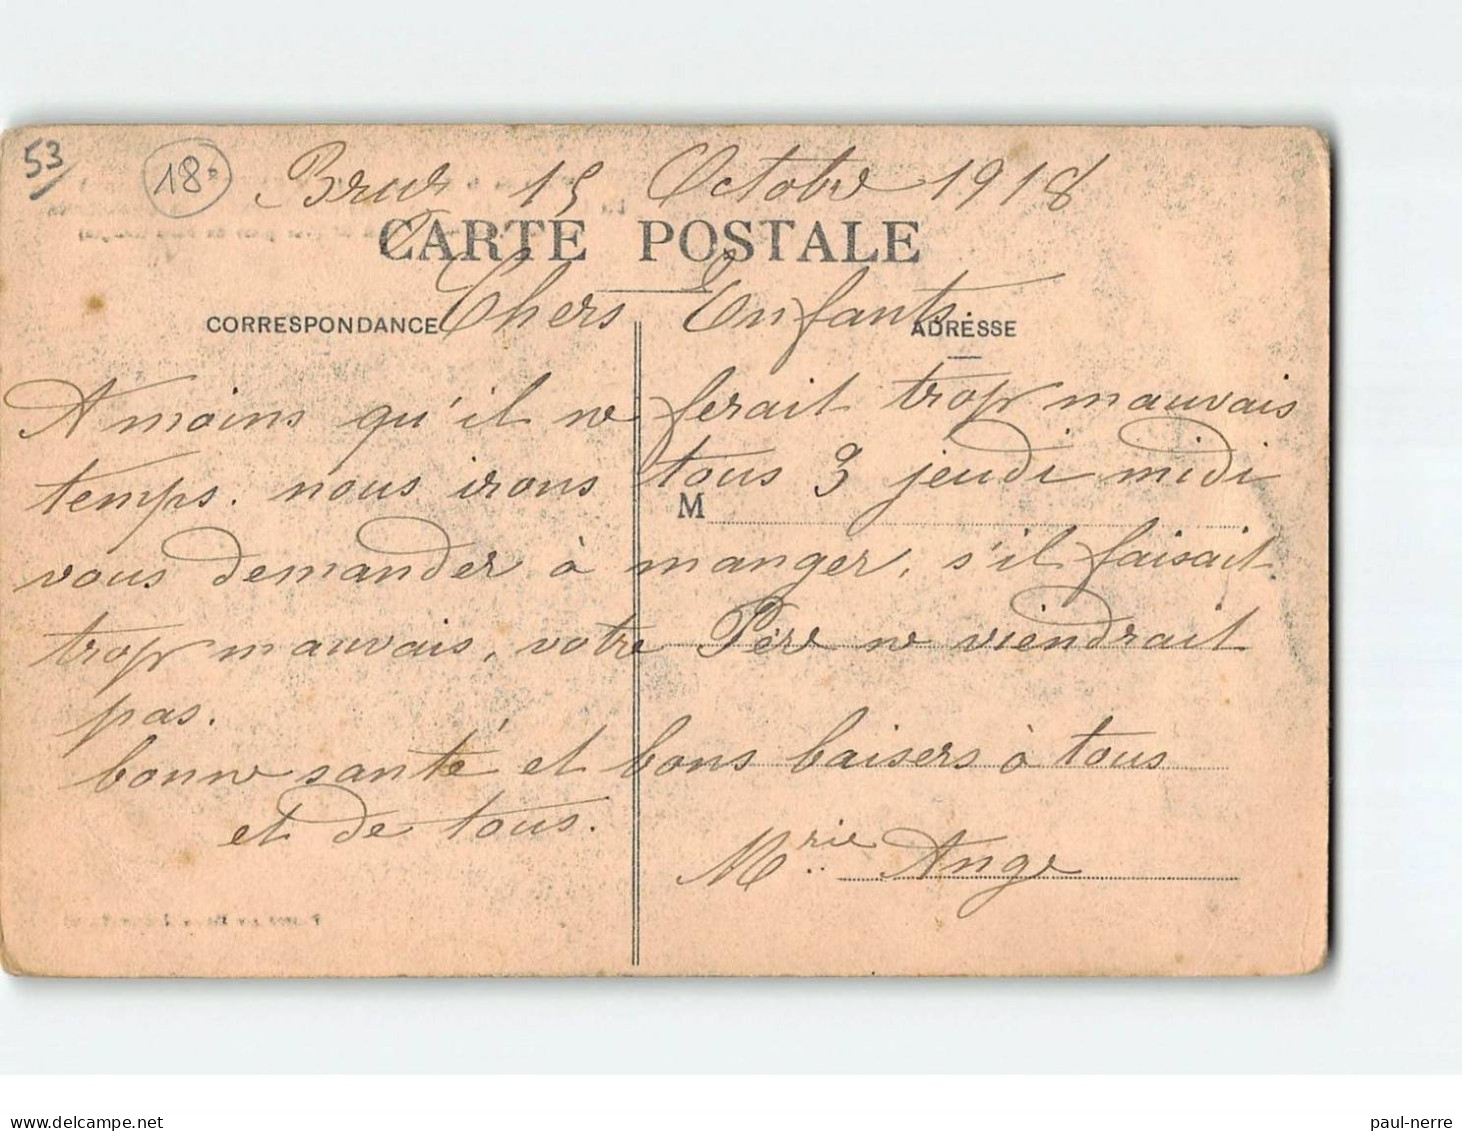 53
18
15 Octobre 1918
CARTE POSTALE
Chers Enfants.
CORRESPONDANCE
ADRESSE
A moins qu'il ne ferait trop mauvais
temps. nous irons tous 3 jeudi midi
M
vous demander à manger, s'il faisait
trop mauvais, votre Père ne viendrait
pas.
bonne santé et bons baisers à tous
et de tous.
Mrie Ange
paul-nerre